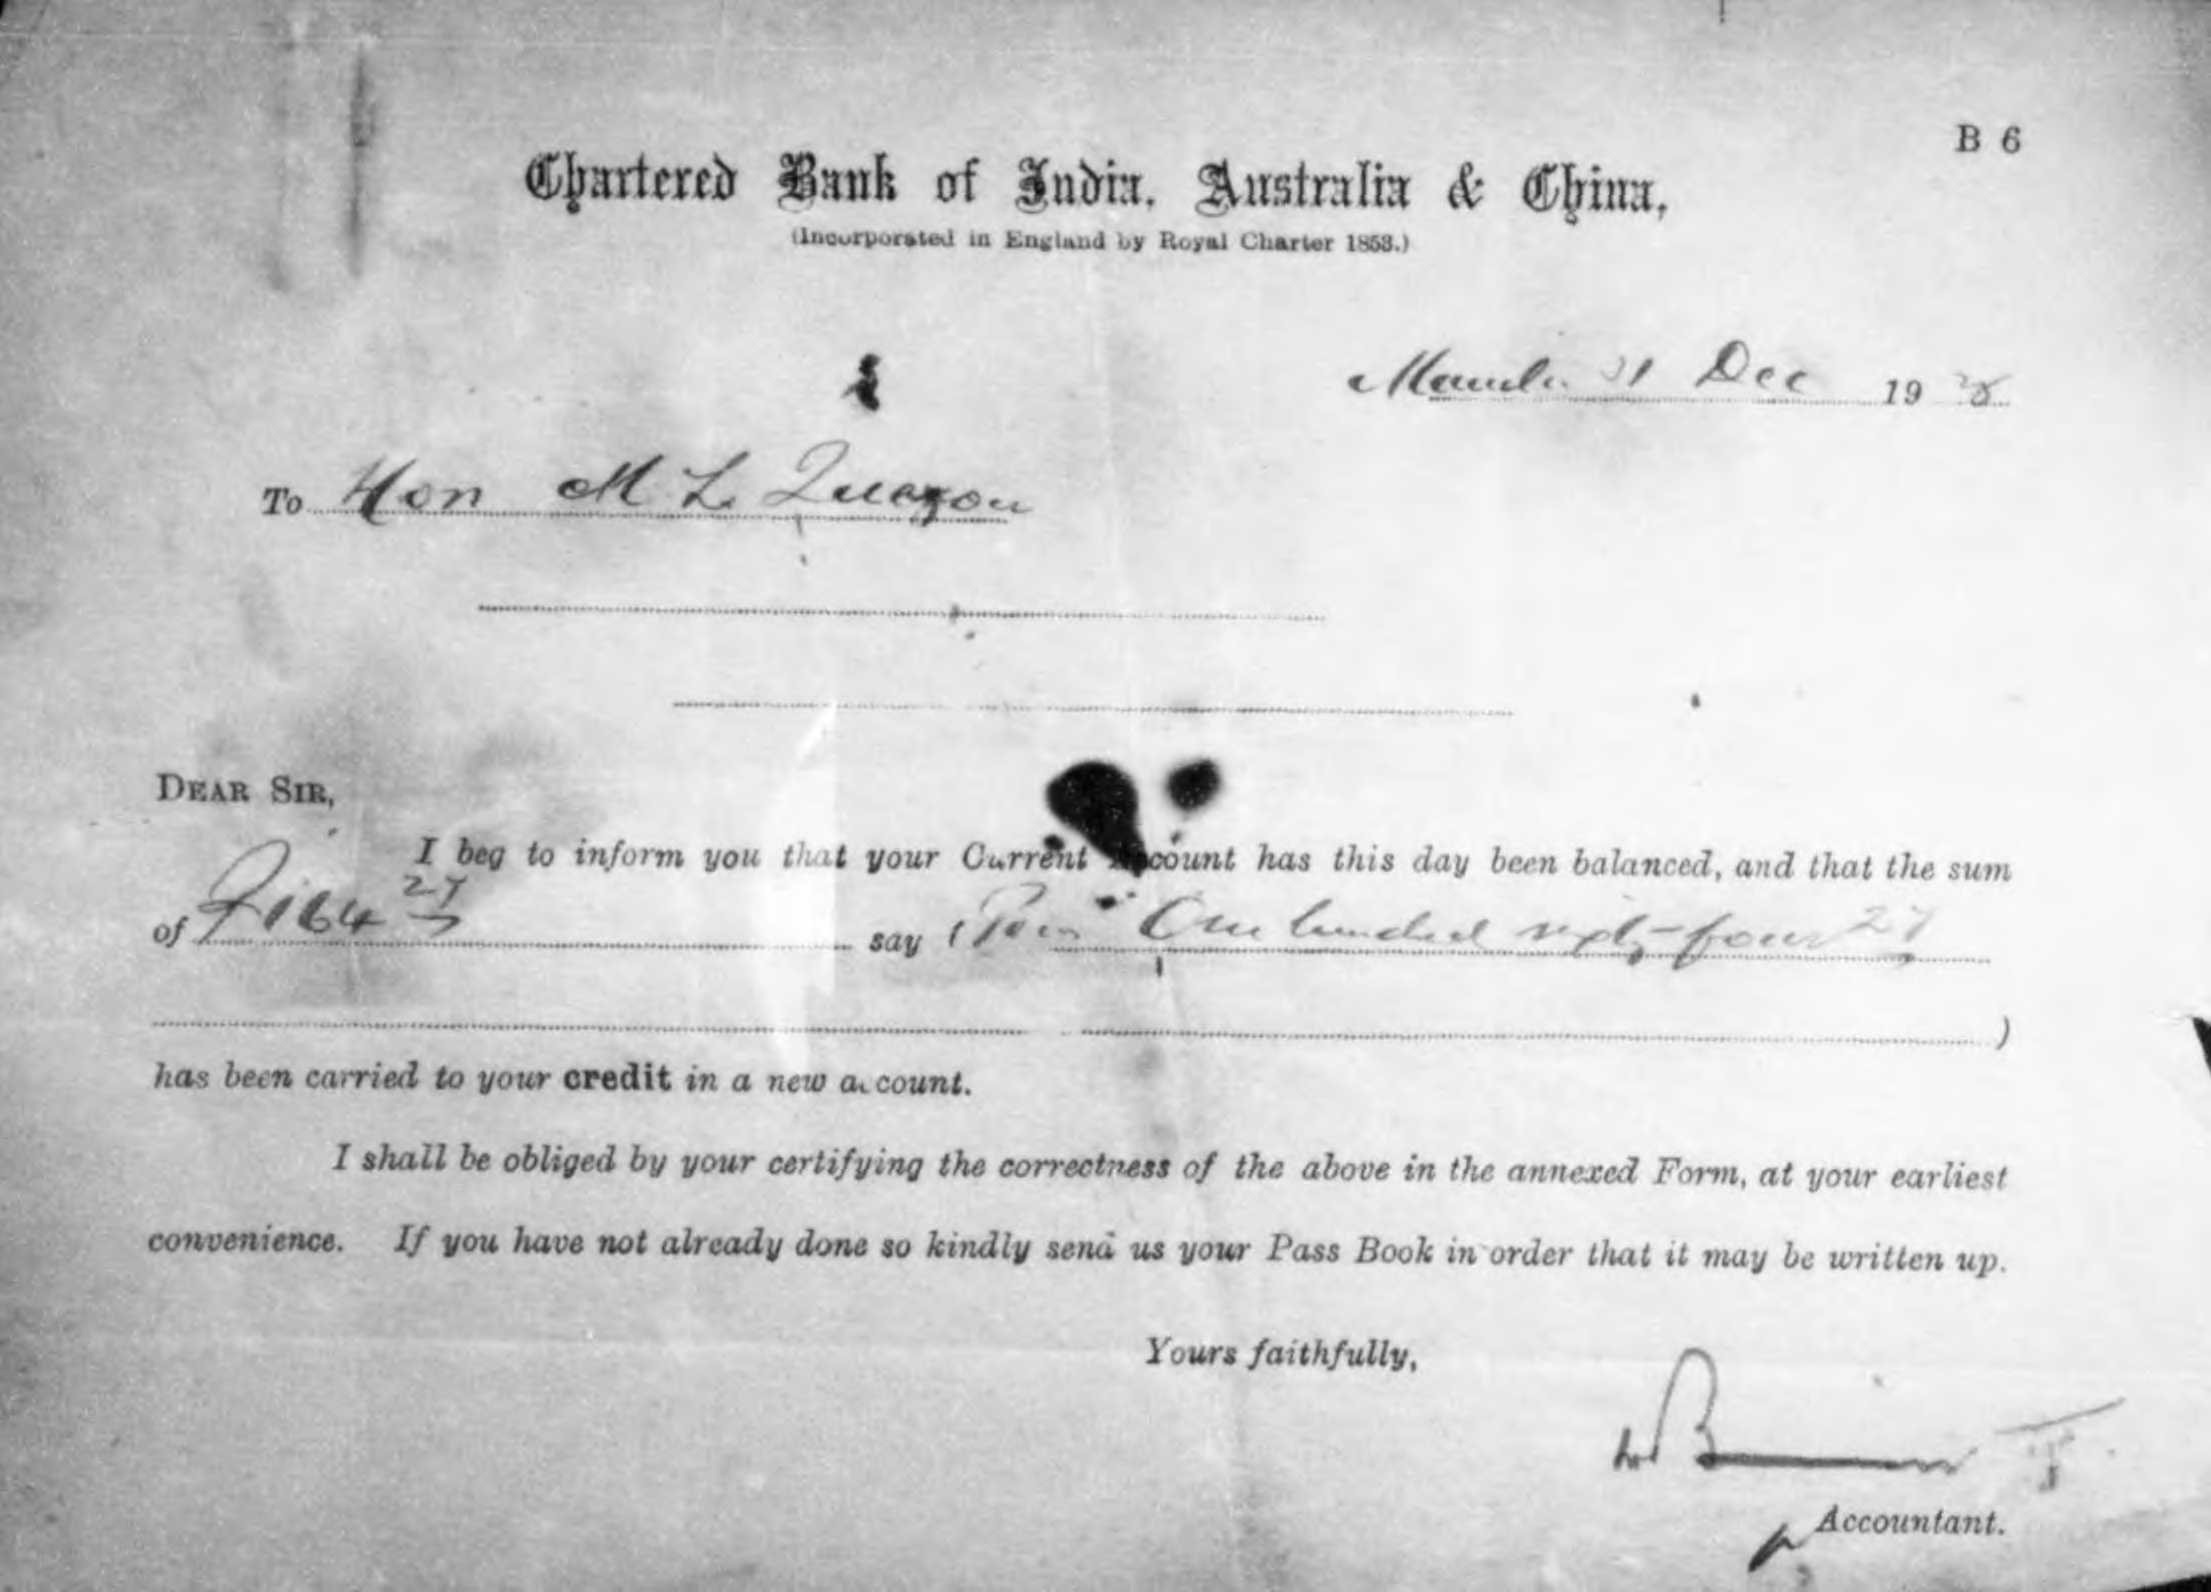 B 6
Chartered Bank of India, Australia & China,
(Incorporated in England by Royal Charter 1853.)
Manila 31 Dec 19
To Hon M L Quezon
DEAR SIR,
I beg to inform you that your Current Account has this day been balanced, and that the sum
of ₱164 27 say (Pesos One hundred sixty-four 27
)
has been carried to your credit in a new account.
I shall be obliged by your certifying the correctness of the above in the annexed Form, at your earliest
convenience. If you have not already done so kindly send us your Pass Book in order that it may be written up.
Yours faithfully,
p Accountant.